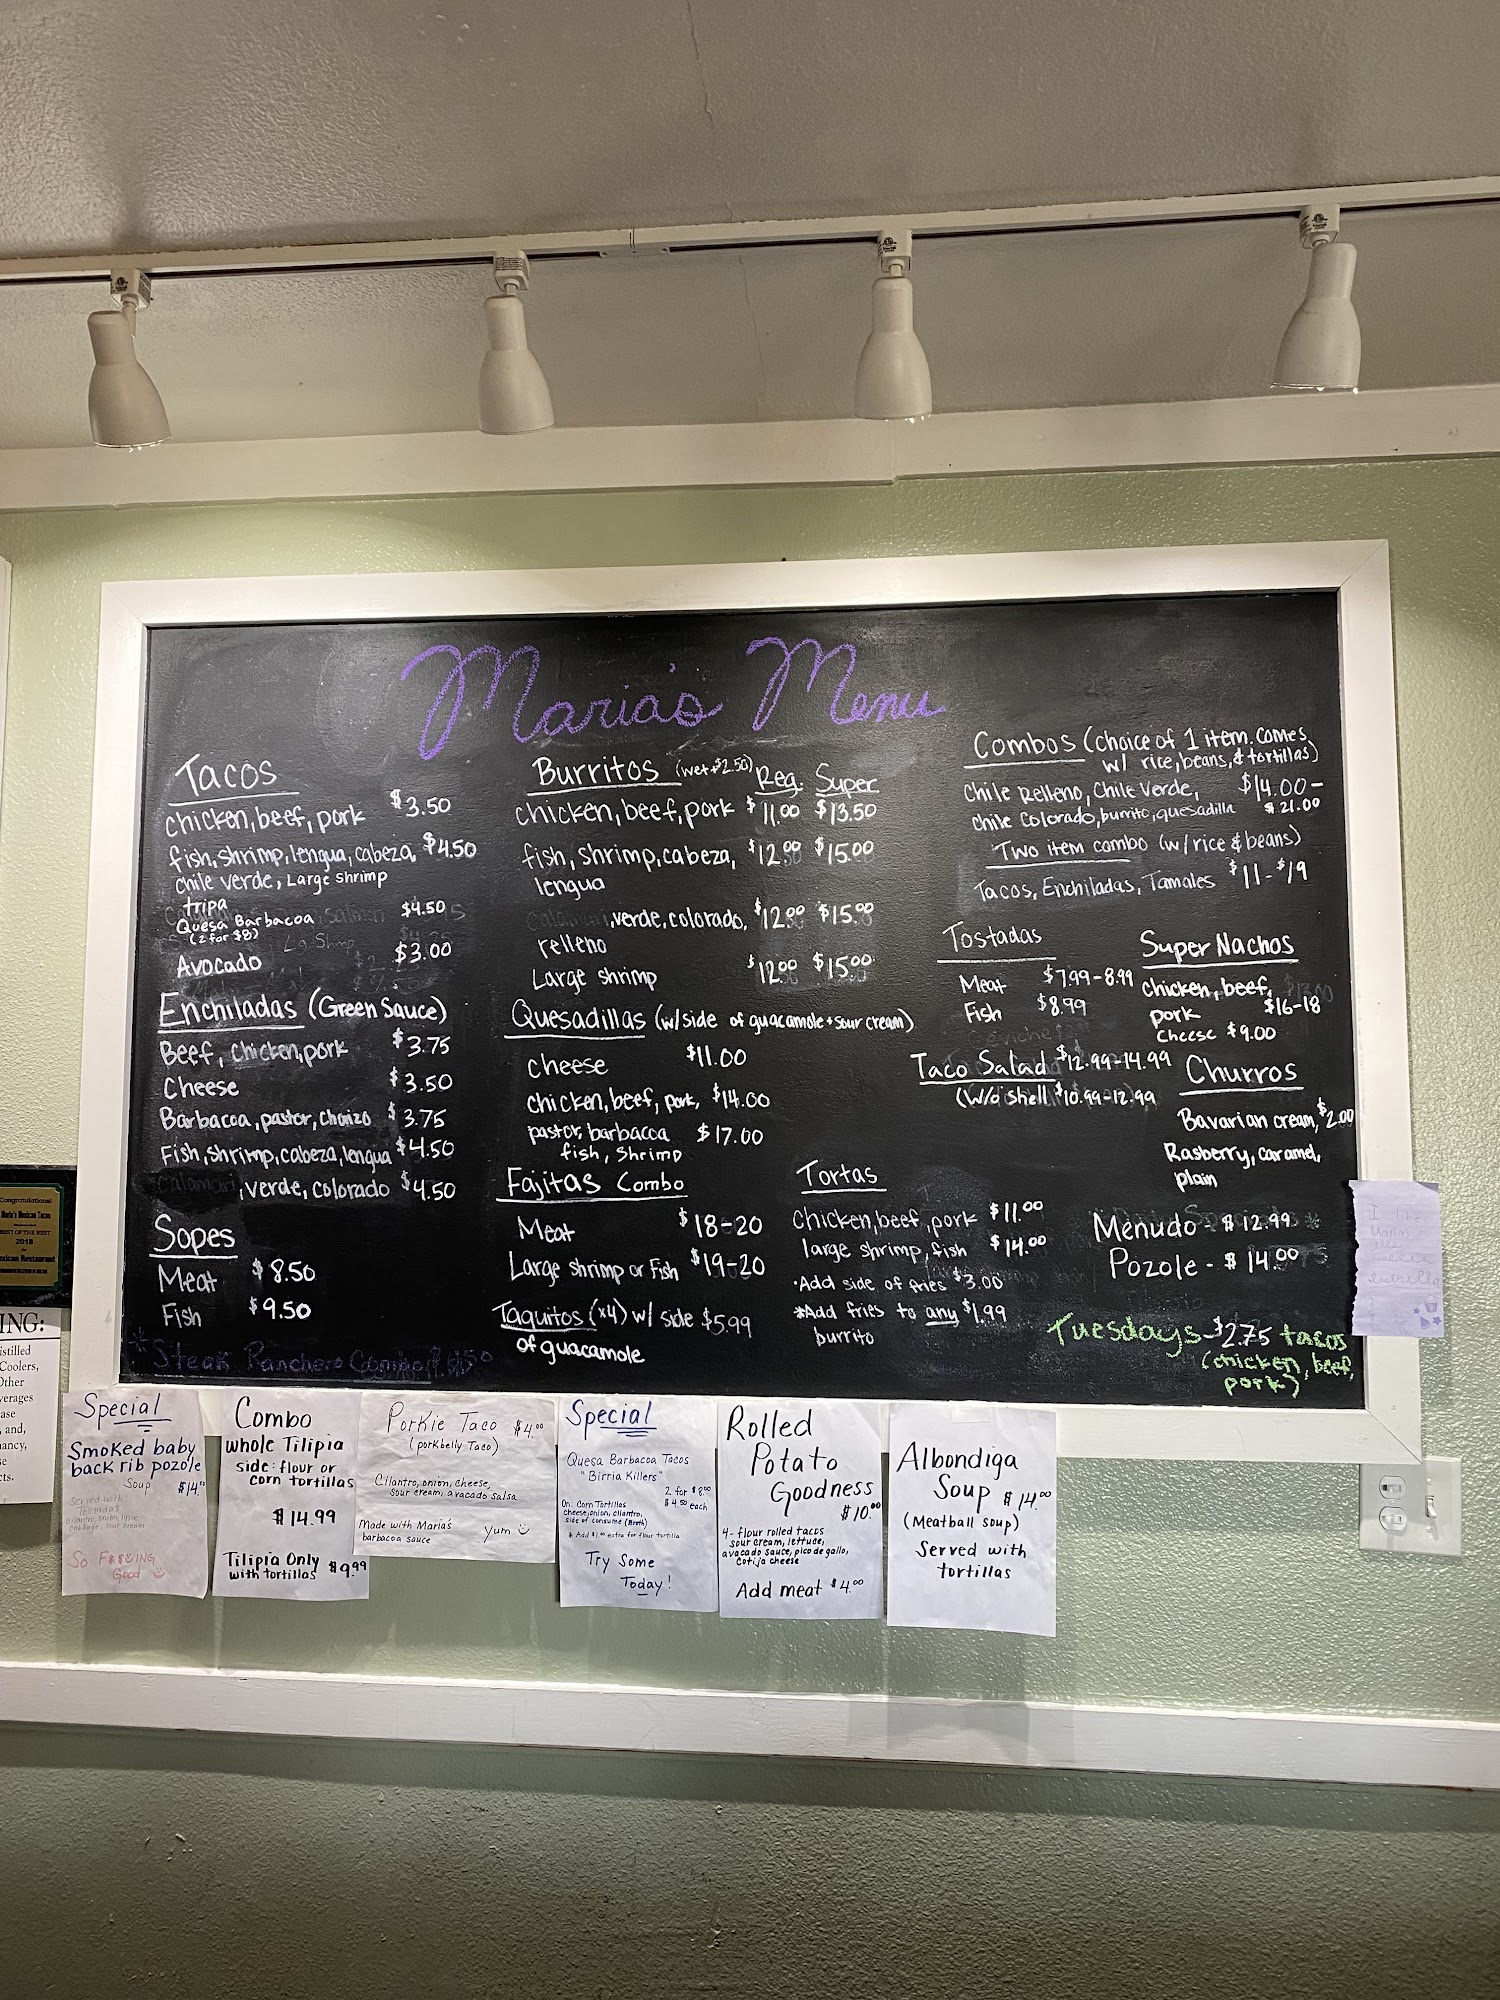 Maria's Menu
Tacos
chicken, beef, pork $3.50
fish, shrimp, lengua, cabeza, $4.50
chile verde, Large shrimp
tripa
Quesa Barbacoa $4.50
(2 for $8)
Avocado $3.00
Enchiladas (Green Sauce)
Beef, chicken, pork $3.75
Cheese $3.50
Barbacoa, pastor, chorizo $3.75
Fish, shrimp, cabeza, lengua $4.50
Calamari, verde, colorado $4.50
Sopes
Meat $8.50
Fish $9.50
*Steak Ranchero Combo
Burritos (wet +$2.50) Reg. Super
chicken, beef, pork $11.00 $13.50
fish, shrimp, cabeza, $12.00 $15.00
lengua
, verde, colorado, $12.00 $15.00
relleno
Large shrimp $12.00 $15.00
Quesadillas (w/side of guacamole + sour cream)
cheese $11.00
chicken, beef, pork, $14.00
pastor, barbacoa $17.00
fish, shrimp
Fajitas Combo
Meat $18-20
Large shrimp or Fish $19-20
Taquitos (x4) w/ side $5.99
of guacamole
Combos (choice of 1 item. comes
w/ rice, beans, & tortillas)
Chile Relleno, Chile Verde, $14.00-
chile Colorado, burrito, quesadilla $21.00
Two item combo (w/rice & beans)
Tacos, Enchiladas, Tamales $11-$19
Tostadas
Meat $7.99-8.99
Fish $8.99
Super Nachos
chicken, beef,
pork $16-18
Cheese $9.00
Taco Salad $12.99-14.99
(w/o shell $10.99-12.99
Churros
Bavarian cream, $2.00
Rasberry, caramel,
plain
Tortas
Chicken, beef, pork $11.00
large shrimp, fish $14.00
•Add side of fries $3.00
*Add fries to any $1.99
burrito
Menudo - $12.99
Pozole - $14.00
Tuesdays $2.75 tacos
(chicken, beef,
pork)
Congratulations!
Maria's Mexican Tacos
BEST OF THE BEST
2018
Mexican Restaurant
ING:
istilled
Coolers,
Other
verages
ase
, and,
nancy,
se
cts.
Special
Smoked baby
back rib pozole
Soup $14.00
Served with
Tostadas
cilantro, onion, lime
cabbage, sour cream
So F**☺ING
Good ☺
Combo
whole Tilipia
side: flour or
corn tortillas
$14.99
Tilipia Only
with tortillas $9.99
Porkie Taco $4.00
(porkbelly Taco)
Cilantro, onion, cheese,
sour cream, avacado salsa
Made with Maria's
barbacoa sauce
Yum ☺
Special
Quesa Barbacoa Tacos
"Birria Killers"
2 for $8.00
$4.50 each
On: Corn Tortillas
cheese, onion, cilantro,
side of consume (Broth)
* Add $1.00 extra for flour tortilla
Try Some
Today!
Rolled
Potato
Goodness
$10.00
4- flour rolled tacos
sour cream, lettuce,
avacado sauce, pico de gallo,
cotija cheese
Add meat $4.00
Albondiga
Soup $14.00
(Meatball soup)
Served with
tortillas